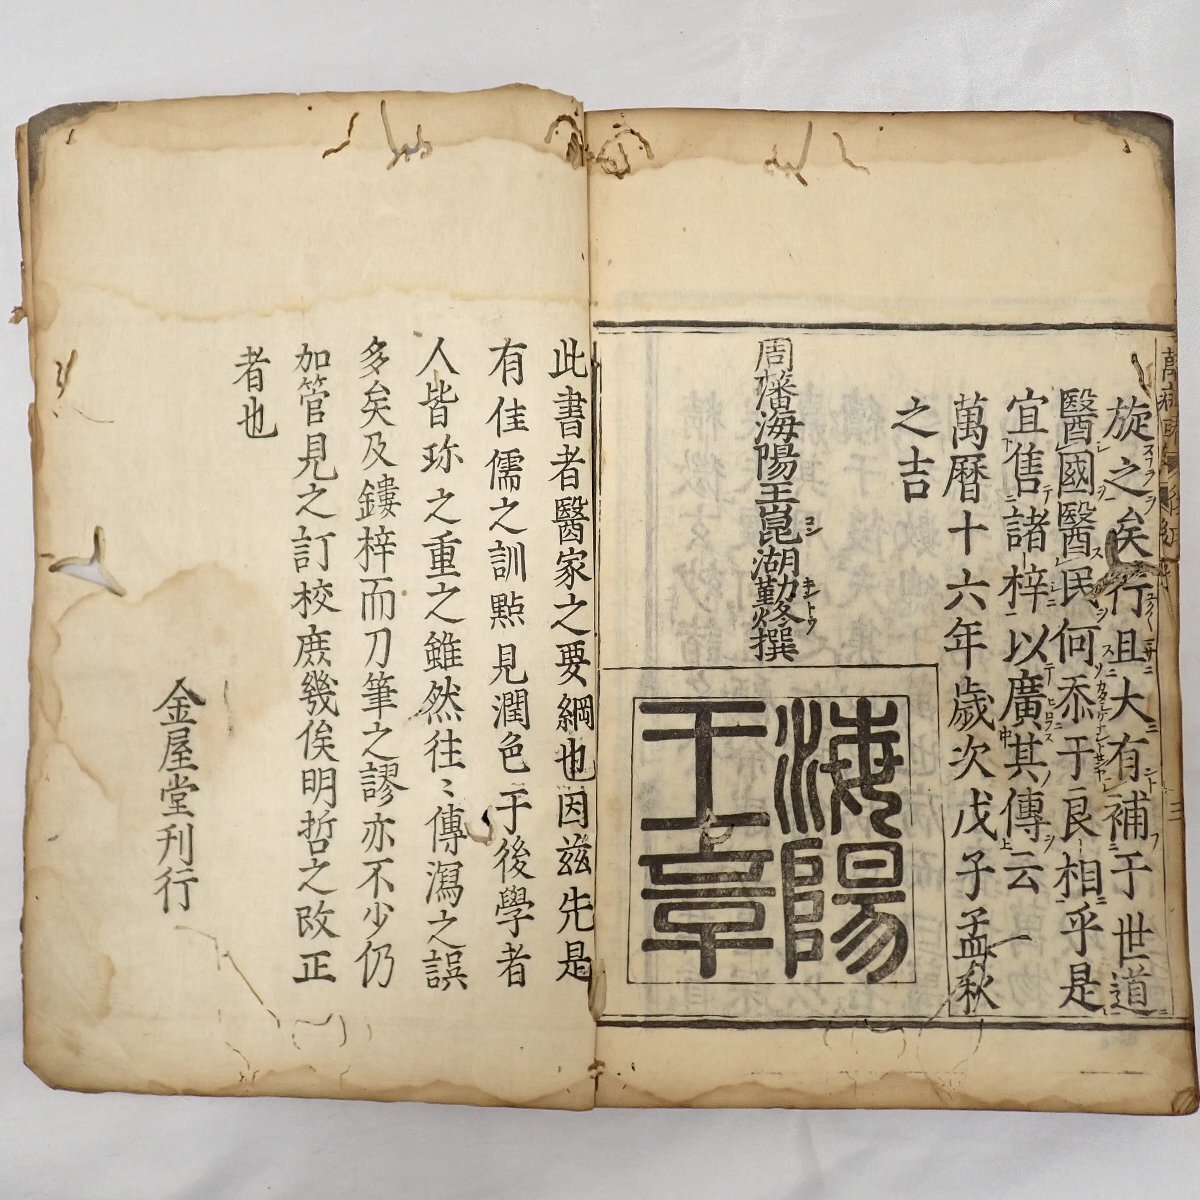 旋之矣行且大有補于世道
醫國醫民何忝于良相乎是
宜售諸梓以廣其傳云
萬曆十六年歲次戊子孟秋
之吉
周藩海陽王崑湖勤炵撰
海陽
王章
此書者醫家之要綱也因茲先是
有佳儒之訓點見潤色于後學者
人皆珎之重之雖然往〻傳瀉之誤
多矣及鏤梓而刀筆之謬亦不少仍
加管見之訂校庶幾俟明哲之改正
者也
金屋堂刊行